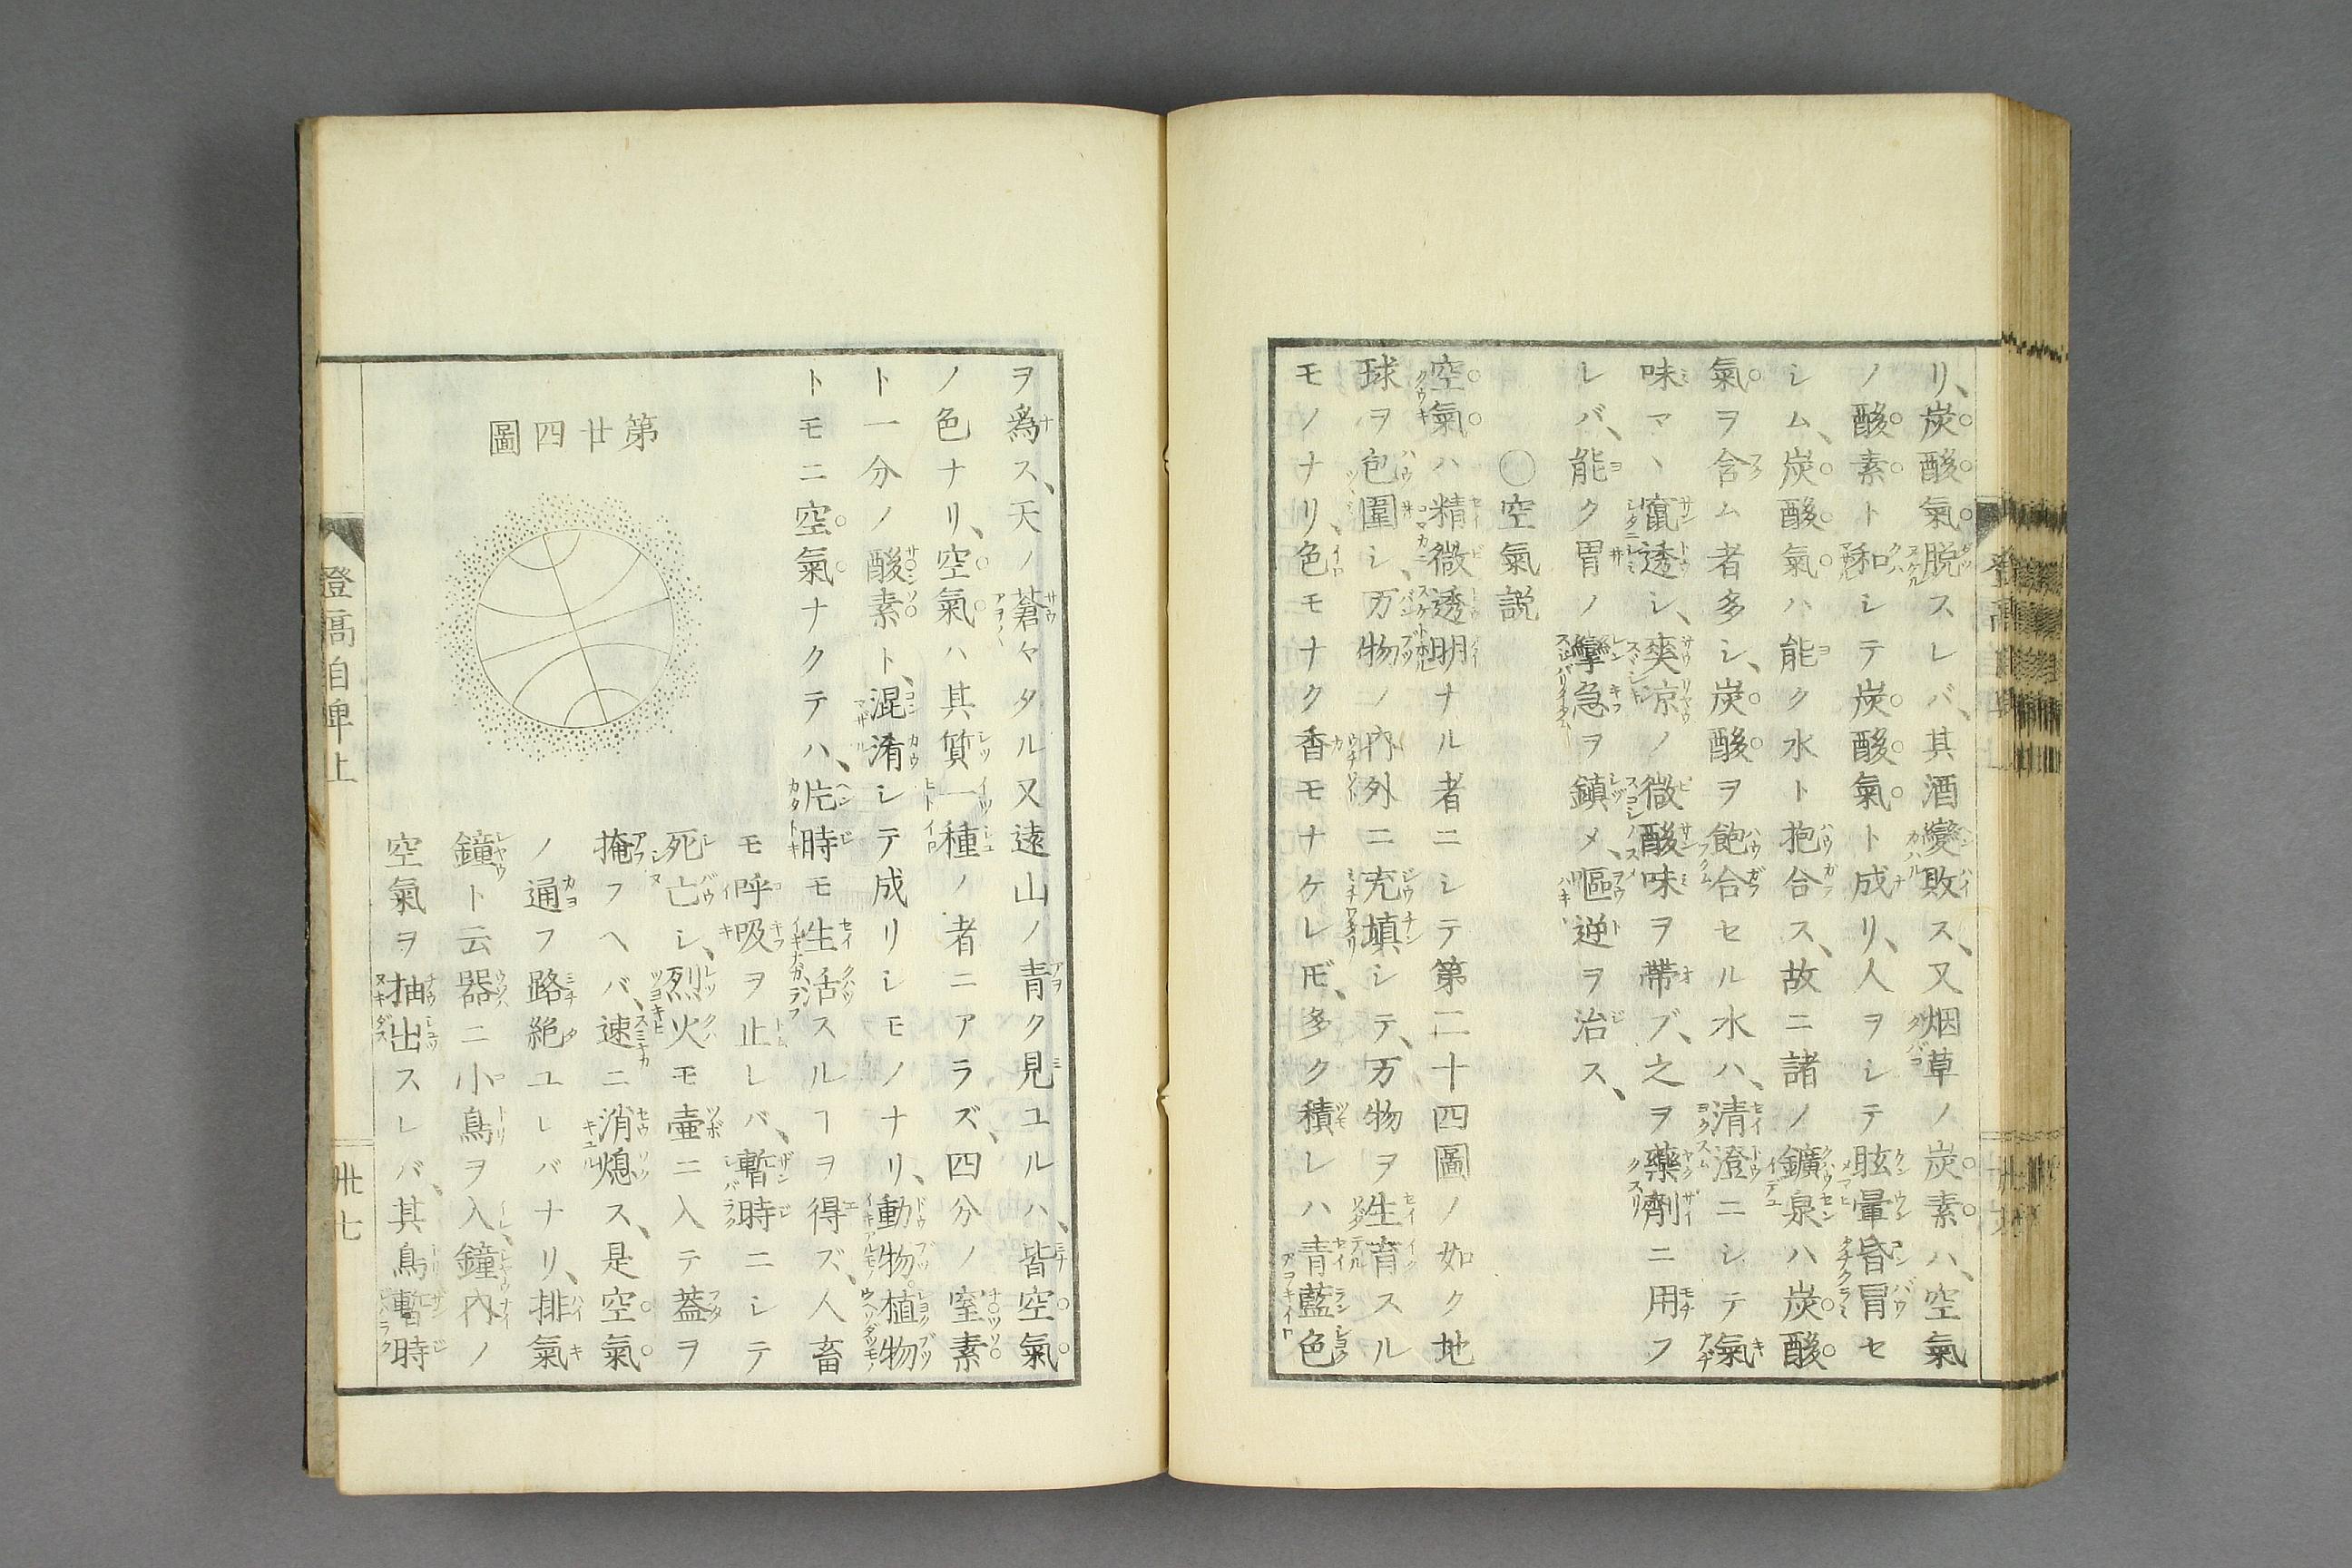 リ、炭酸氣脱スレバ、其酒變敗ス、又烟草ノ炭素ハ、空氣
ノ酸素ト和シテ炭酸氣ト成リ、人ヲシテ眩暈昏冒セ
シム、炭酸氣ハ能ク水ト抱合ス、故ニ諸ノ鑛泉ハ炭酸
氣ヲ含ム者多シ、炭酸ヲ飽合セル水ハ、清澄ニシテ氣
味マヽ竄透シ、爽涼ノ微酸味ヲ帶ブ、之ヲ藥劑ニ用フ
レバ、能ク胃ノ攣急ヲ鎮メ、嘔逆ヲ治ス、
〇空氣説
空氣ハ精微透明ナル者ニシテ第二十四圖ノ如ク地
球ヲ包圍シ、万物ノ内外ニ充填シテ、万物ヲ生育スル
モノナリ、色モナク香モナケレ𪜈、多ク積レハ青藍色
ヲ爲ス、天ノ蒼々タル又遠山ノ青ク見ユルハ、皆空氣
ノ色ナリ、空氣ハ其質一種ノ者ニアラズ、四分ノ窒素
ト一分ノ酸素ト、混淆シテ成リシモノナリ、動物植物
トモニ空氣ナクテハ、片時モ生活スルヿヲ得ズ、人畜
モ呼吸ヲ止レバ、暫時ニシテ
死亡シ、烈火モ壷ニ入テ蓋ヲ
掩フヘバ、速ニ消熄ス、是空氣
ノ通フ路絶ユレバナリ、排氣
鐘ト云器ニ小鳥ヲ入、鐘内ノ
空氣ヲ抽出スレバ、其鳥暫時
第廿四圖
登高自卑上
卅七